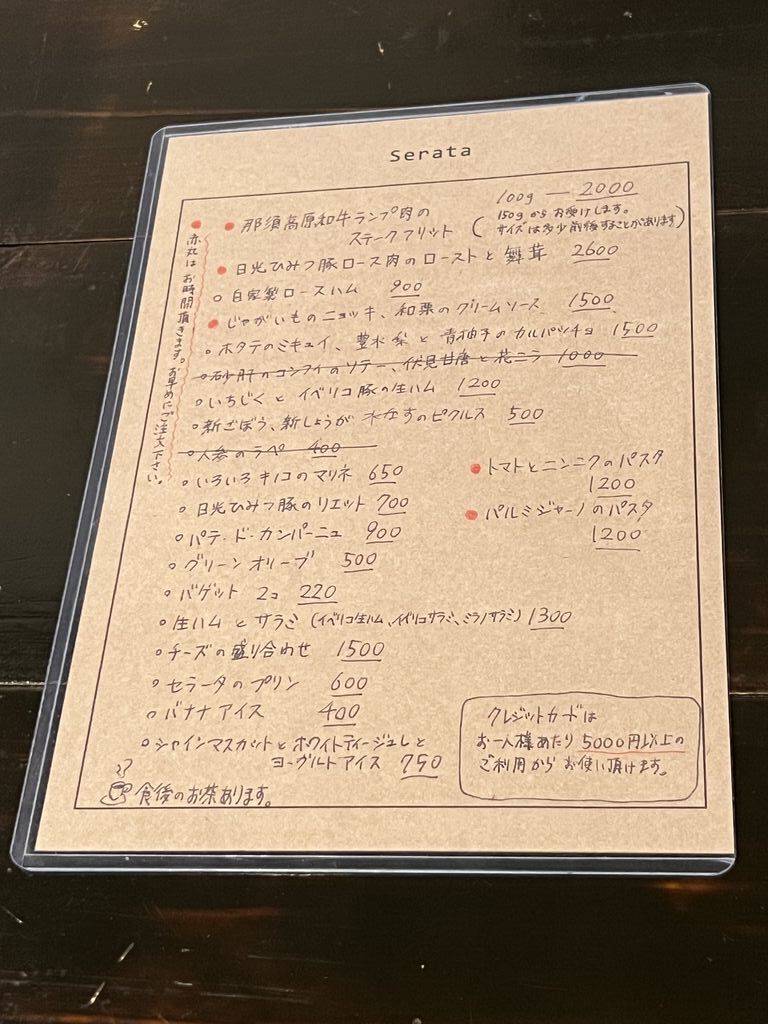 Serata
赤丸はお時間頂きます。お早めにご注文下さい。
那須高原和牛ランプ肉の
ステークフリット
100g — 2000
(150gからお受けします。
サイズは多少前後することがあります)
日光ひみつ豚ロース肉のローストと舞茸 2600
自家製ロースハム 900
じゃがいものニョッキ、和栗のクリームソース 1500
ホタテのミキュイ、豊水梨と青柚子のカルパッチョ 1500
砂肝のコンフィのソテー、伏見甘唐と花ニラ 1000
いちじくとイベリコ豚の生ハム 1200
新ごぼう、新しょうが、水なすのピクルス 500
人参のラペ 400
いろいろキノコのマリネ 650
日光ひみつ豚のリエット 700
パテ・ド・カンパーニュ 900
グリーンオリーブ 500
バゲット 2コ 220
生ハムとサラミ (イベリコ生ハム、イベリコサラミ、ミラノサラミ) 1300
チーズの盛り合わせ 1500
セラータのプリン 600
バナナアイス 400
シャインマスカットとホワイトティージュレと
ヨーグルトアイス 750
食後のお茶あります。
トマトとニンニクのパスタ
1200
パルミジャーノのパスタ
1200
クレジットカードは
お一人様あたり5000円以上の
ご利用からお使い頂けます。